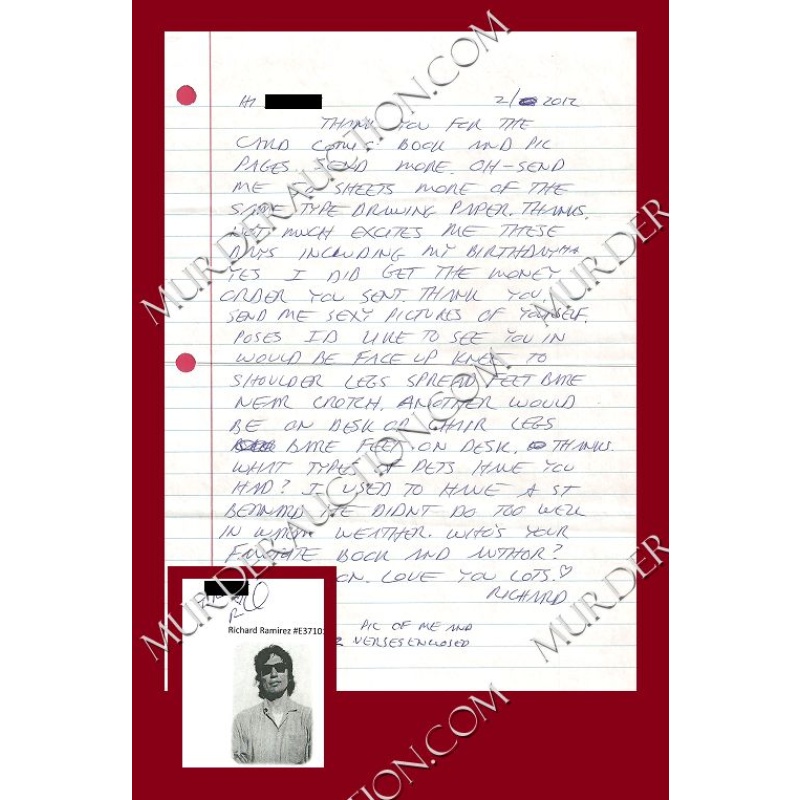 HI
2/ 2012
THANK YOU FOR THE
CARD COMIC BOOK AND PIC
PAGES. SEND MORE. OH-SEND
ME SHEETS MORE OF THE
SAME TYPE DRAWING PAPER. THANKS.
NOT MUCH EXCITES ME THESE
DAYS INCLUDING MY BIRTHDAY
YES I DID GET THE MONEY
ORDER YOU SENT. THANK YOU.
SEND ME SEXY PICTURES OF YOURSELF.
POSES ID LIKE TO SEE YOU IN
WOULD BE FACE UP KNEES TO
SHOULDER LEGS SPREAD FEET BARE
NEAR CROTCH. ANOTHER WOULD
BE ON DESK OR CHAIR LEGS
BARE FEET ON DESK. THANKS.
WHAT TYPES OF PETS HAVE YOU
HAD? I USED TO HAVE A ST
BERNARD HE DIDNT DO TOO WELL
IN WARM WEATHER. WHO'S YOUR
FAVORITE BOOK AND AUTHOR?
ON. LOVE YOU LOTS.♡
RICHARD
PIC OF ME AND
VERSES ENCLOSED
Richard Ramirez #E3710
MURDERAUCTION.COM